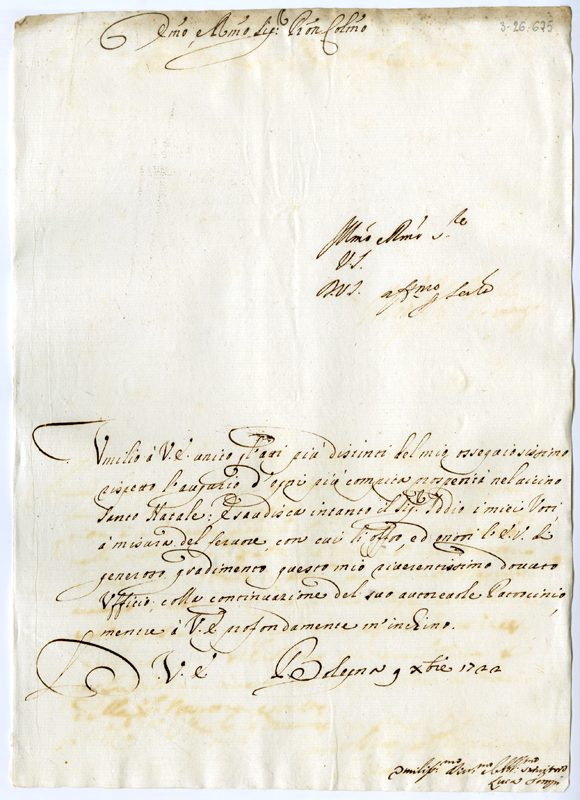 3-26-675
Emo, e Rmo Sig.r Pron Colmo
Illmo e Rmo S.re
V.S.
D.V.S. affmo Ser.
Umilio à V.E. unito gl'atti più distinti del mio ossequiosissimo
rispetto l'augurio d'ogni più compita prosperità nel vicino
Santo Natale: Esaudisca intanto il Sig.r Iddio i miei Voti
à misura del fervore, con cui li offro, ed onori l'E.V. di
generoso gradimento questo mio riverentissimo dovuto
Ufficio, colla continuazione del suo autorevole Patrocinio,
mentre à V.E. profondamente m'inchino.
D. V. E. Bologna 9 Xbre 1722
Umiliss.mo Devmo Obb.mo Servitore
Luca